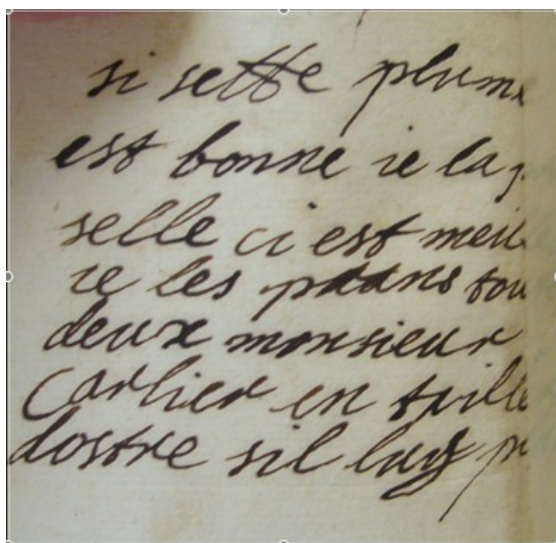 si sette plume
est bonne ie la p
selle ci est meil
ie les prans tou
deux monsieur
Carlier en taille
dostre sil luy p